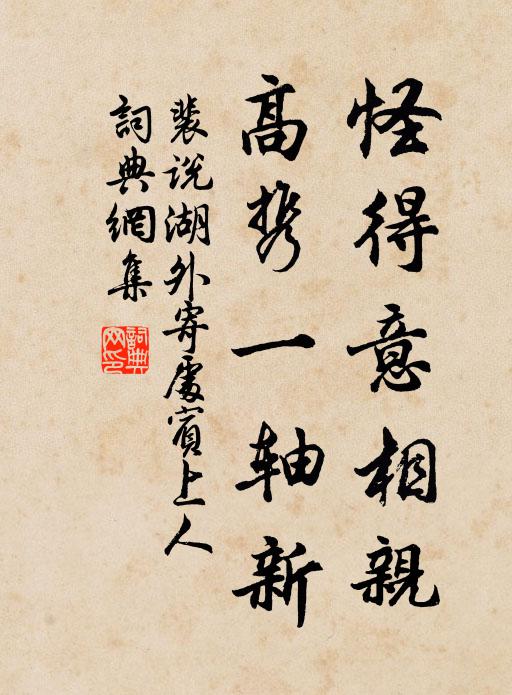 怪得意相親
高携一轴新
裴说湖外寄處賓上人
詞典網集
詞典网印